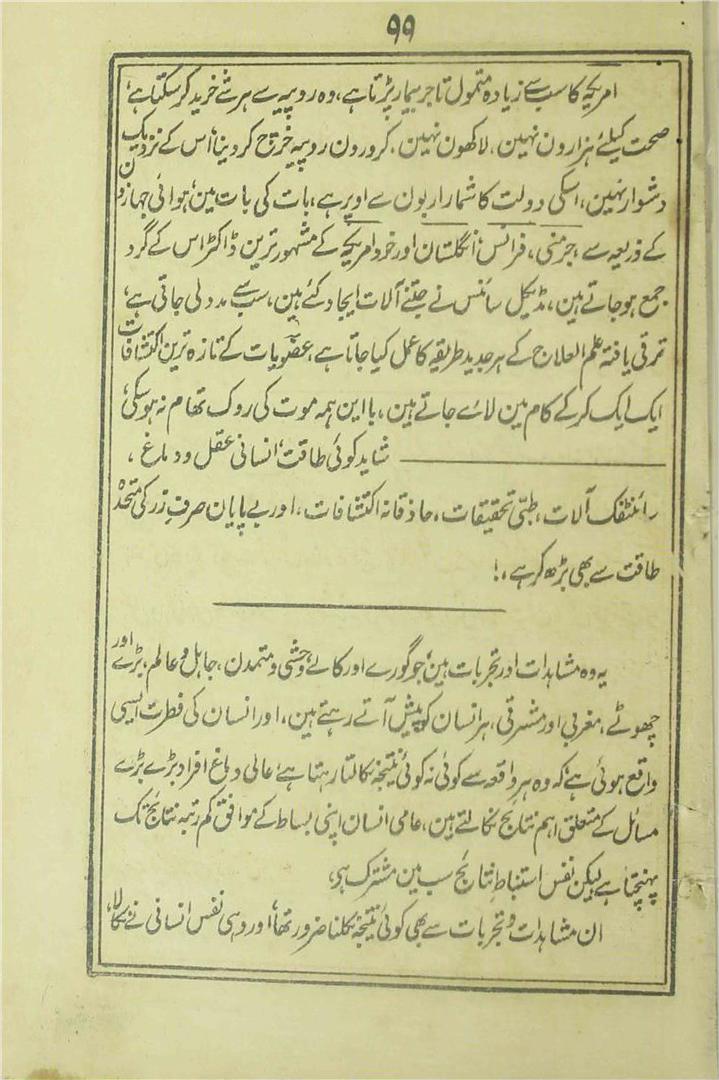 ۹۹
امریکہ کا سب سے زیادہ متمول تاجر بیمار پڑتا ہے، وہ روپیہ سے ہر شے خرید کر سکتا ہے،
صحت کیلئے ہزارون نہین، لاکھون نہین، کرورون روپیہ خرچ کر دینا اس کے نزدیک
دشوار نہین، اسکی دولت کا شمار اربون سے اوپر ہے، بات کی بات مین، ہوائی جہازون
کے ذریعہ سے، جرمنی، فرانس، انگلستان اور خود امریکہ کے مشہور ترین ڈاکٹر اس کے گرد
جمع ہو جاتے ہین، مڈیکل سائنس نے جتنے آلات ایجاد کئے ہین، سب سے مدد لی جاتی ہے،
ترقی یافتہ علم العلاج کے ہر جدید طریقہ کا عمل کیا جاتا ہے، عضویات کے تازہ ترین اکتشافات
ایک ایک کر کے کام مین لائے جاتے ہین، با این ہمہ موت کی روک تھام نہ ہو سکی،
——— شاید کوئی طاقت، انسانی عقل و دماغ،
سائنٹفک آلات، طبّی تحقیقات، حاذقانہ اکتشافات، اور بے پایان صرفِ زر کی متحدہ
طاقت سے بھی بڑھ کر ہے،!
یہ وہ مشاہدات اور تجربات ہین، جو گورے اور کالے، وحشی و متمدن، جاہل و عالم، بڑے اور
چھوٹے، مغربی اور مشرقی، ہر انسان کو پیش آتے رہتے ہین، اور انسان کی فطرت ایسی
واقع ہوئی ہے، کہ وہ ہر واقعہ سے کوئی نہ کوئی نتیجہ نکالتا رہتا ہے، عالی دماغ افراد بڑے بڑے
مسائل کے متعلق اہم نتائج نکالتے ہین، عامی انسان اپنی بساط کے موافق کم رتبہ نتائج تک
پہنچتا ہے، لیکن نفس استنباطِ نتائج سب مین مشترک ہی،
ان مشاہدات و تجربات سے بھی کوئی نتیجہ نکلنا ضرور تھا، اور وہی نفس انسانی نے نکالا،